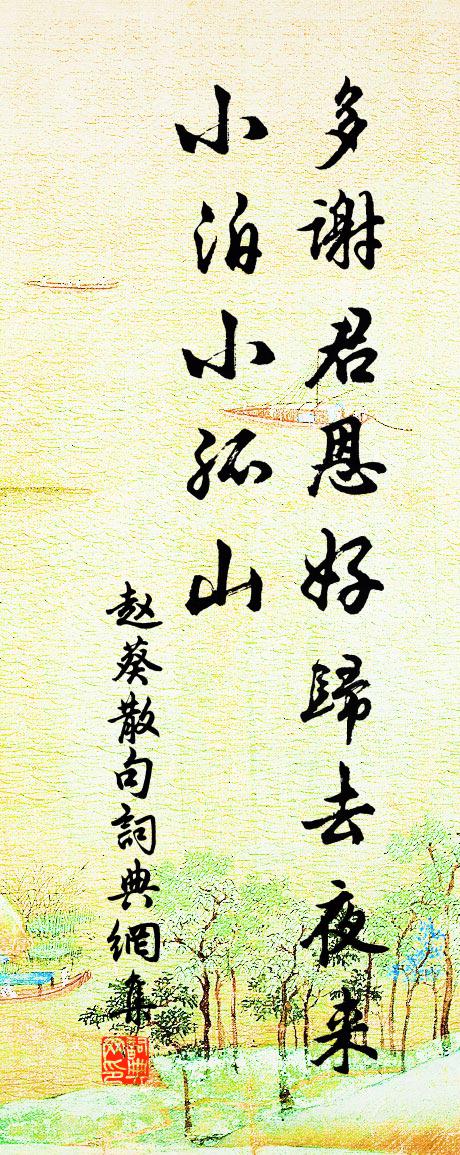 多謝君恩好歸去夜来
小泊小孤山
赵葵散句詞典網集